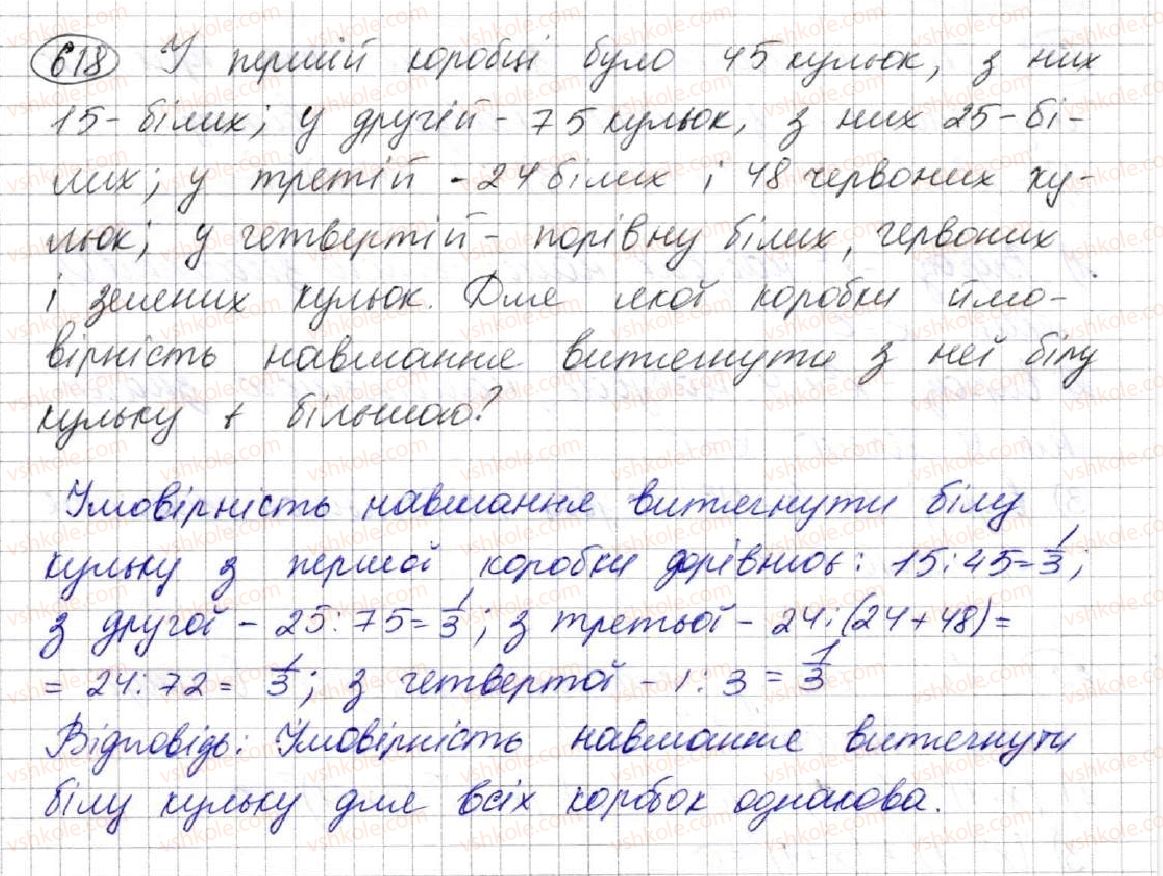 618 У першій коробці було 45 кульок, з них
15 - білих; у другій - 75 кульок, з них 25 - бі-
лих; у третій - 24 білих і 48 червоних ку-
льок; у четвертій - порівну білих, червоних
і зелених кульок. Для якої коробки ймо-
вірність навмання витягнути з неї білу
кульку є більшою?
Ймовірність навмання витягнути білу
кульку з першої коробки дорівнює: 15 : 45 = 1/3;
з другої - 25 : 75 = 1/3; з третьої - 24 : (24 + 48) =
= 24 : 72 = 1/3; з четвертої - 1 : 3 = 1/3
Відповідь: Ймовірність навмання витягнути
білу кульку для всіх коробок однакова.